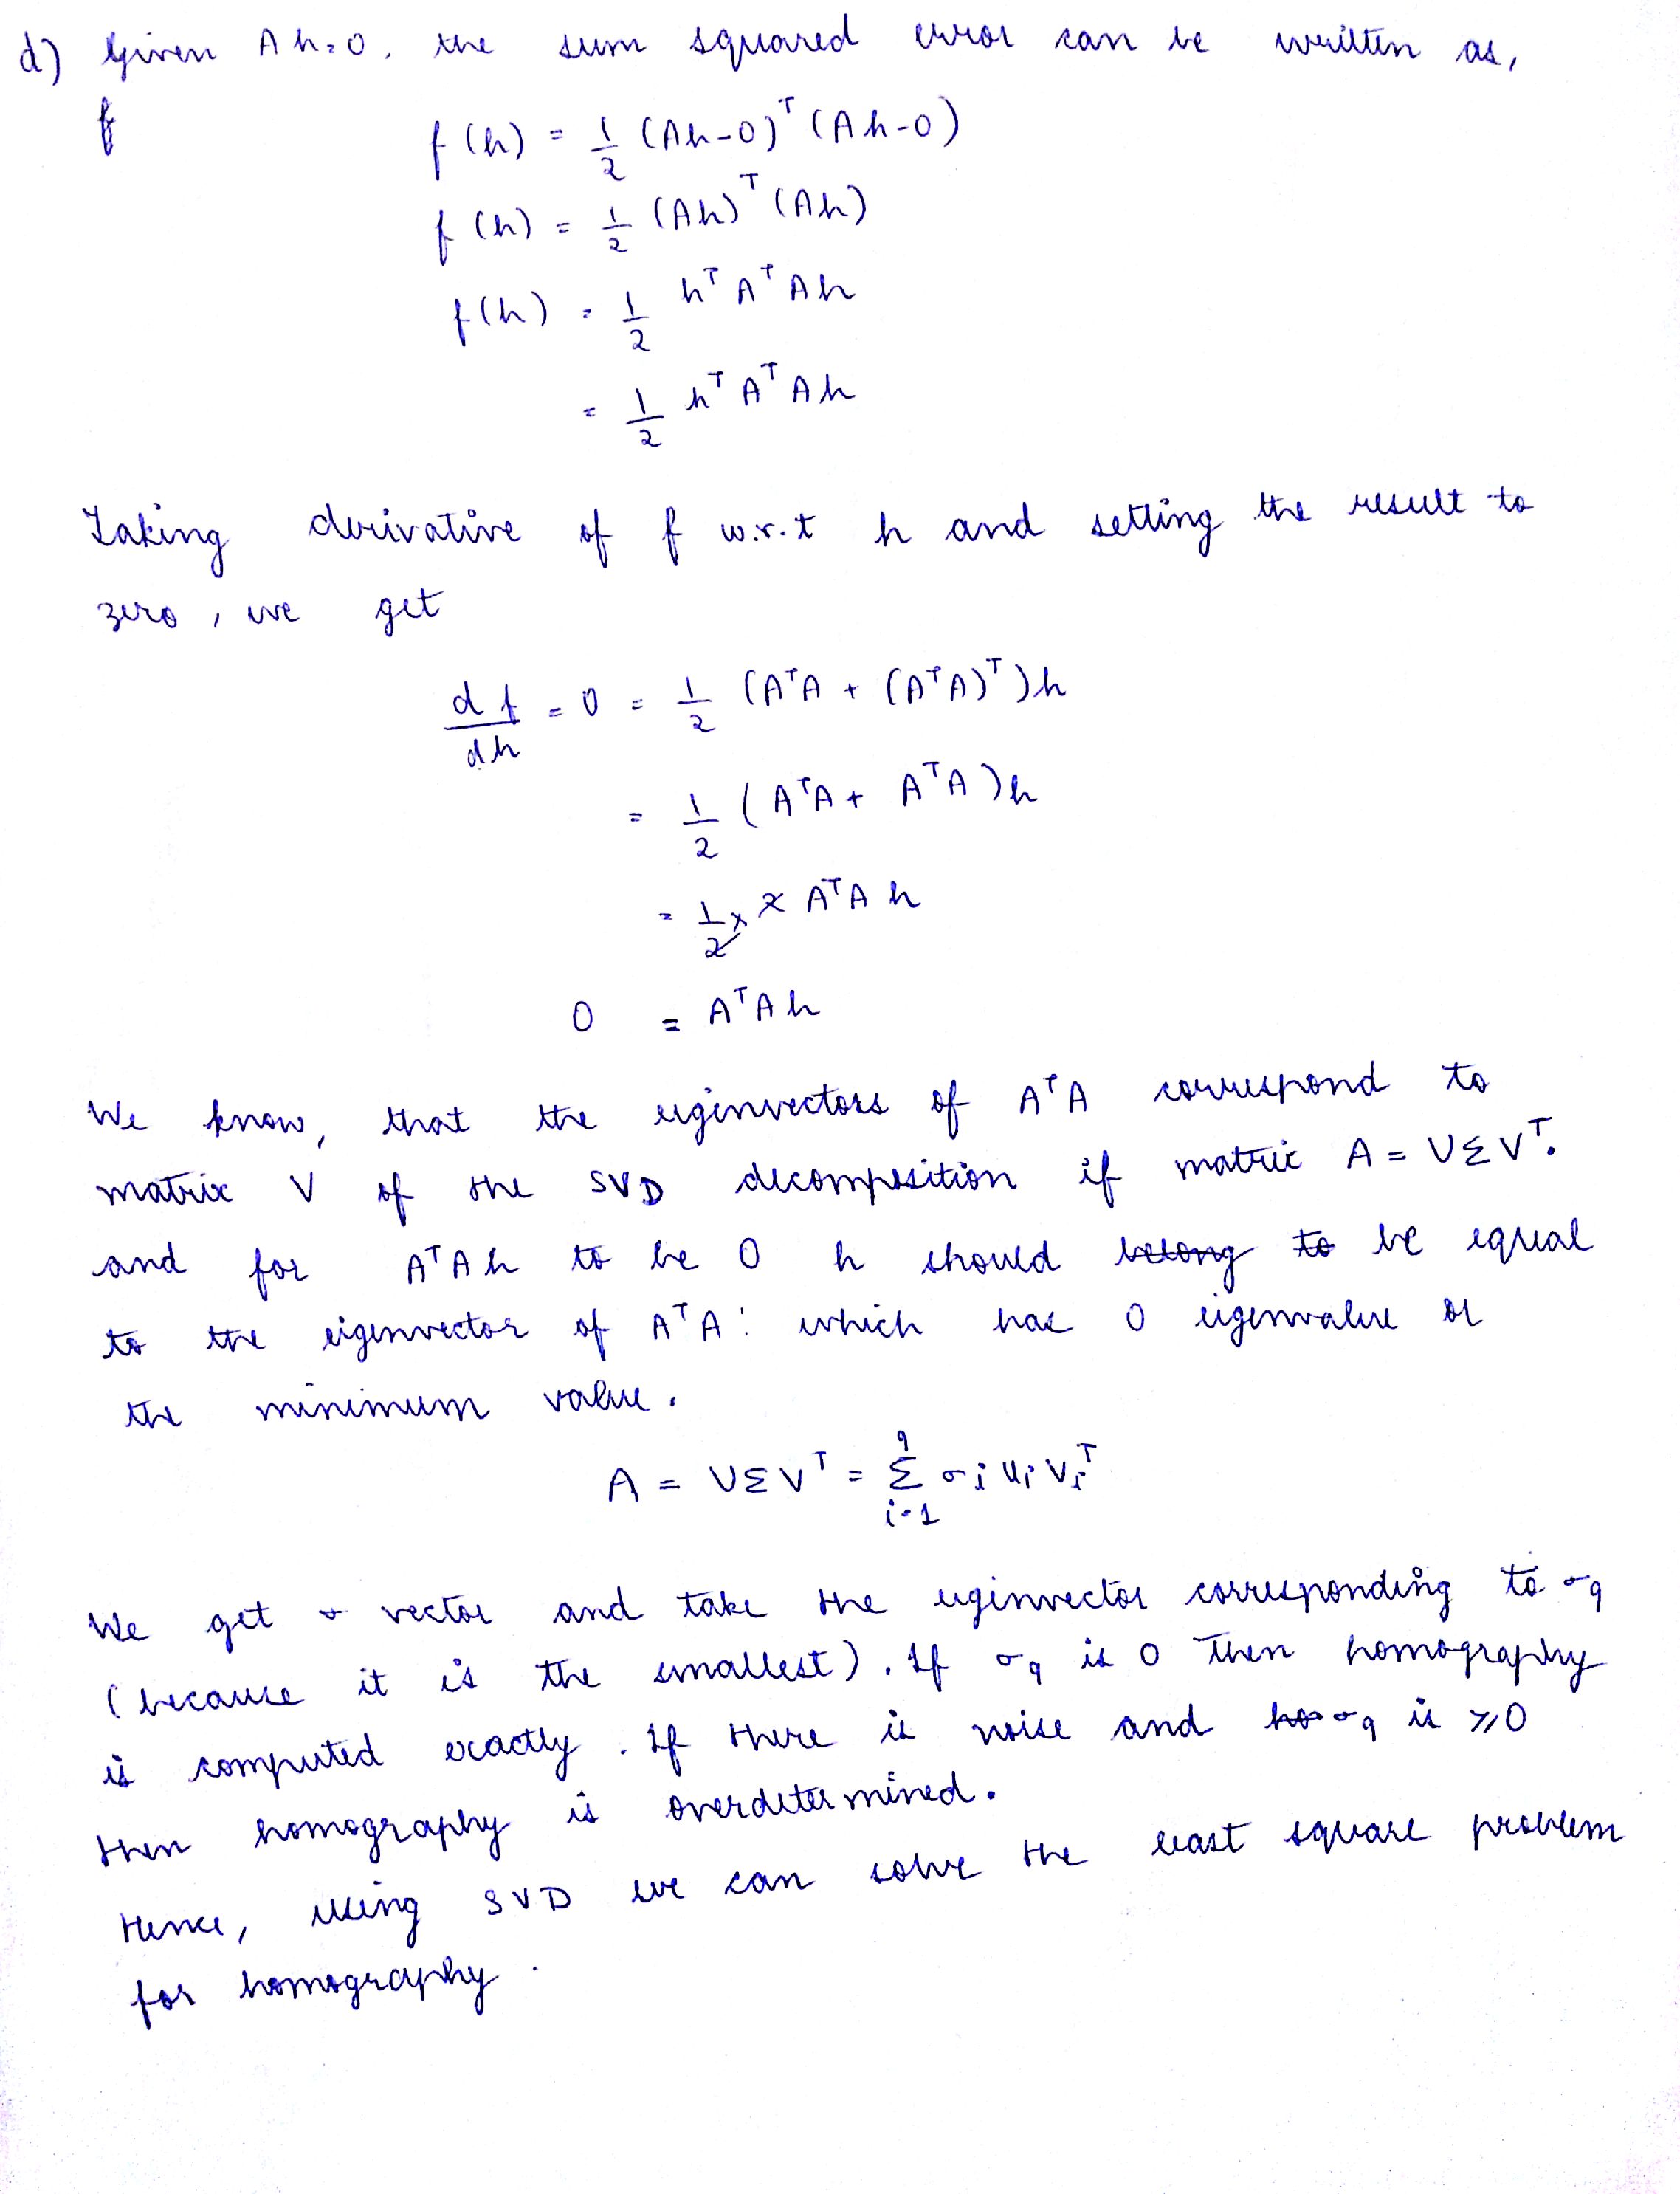 d) Given Ah=0, the sum squared error can be written as,
f
f(h) = 1/2 (Ah-0)^T (Ah-0)
f(h) = 1/2 (Ah)^T (Ah)
f(h) = 1/2 h^T A^T Ah
= 1/2 h^T A^T Ah
Taking derivative of f w.r.t h and setting the result to
zero, we get
df/dh = 0 = 1/2 (A^TA + (A^TA)^T)h
= 1/2 (A^TA + A^TA)h
= 1/2 x 2 A^TA h
0 = A^TAh
We know, that the eiginvectors of A^TA correspond to
matrix V of the SVD decomposition if matric A = UΣV^T.
and for A^TAh to be 0 h should belong to be equal
to the eigenvector of A^TA: which has 0 eigenvalue or
the minimum value.
A = UΣV^T = Σ_{i=1}^{9} σi ui Vi^T
We get σ vector and take the eiginvector corresponding to σ9
(because it is the smallest). If σ9 is 0 then homography
is computed exactly. If there is noise and σ9 is ≥0
then homography is overdetermined.
Hence, using SVD we can solve the least square problem
for homography.